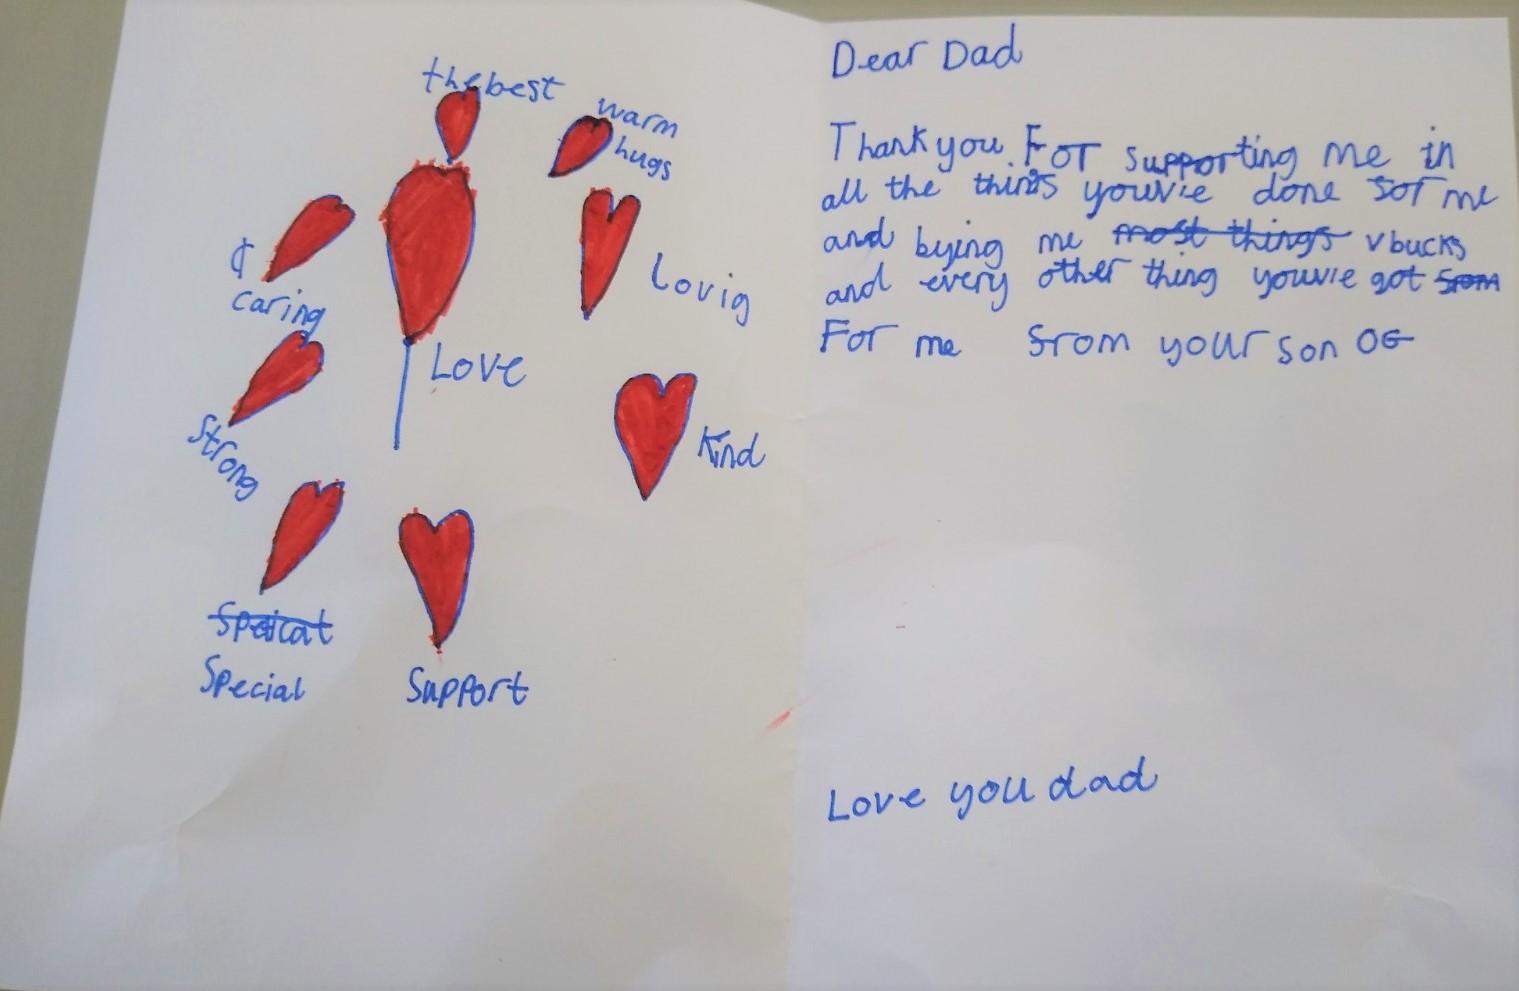 the best
warm
hugs
caring
Lovig
Love
Strong
Kind
Speicat
Special
Support
Dear Dad
Thank you For supporting me in
all the things youv'e done for me
and bying me most things vbucks
and every other thing youv'e got from
For me from your son OG
Love you dad